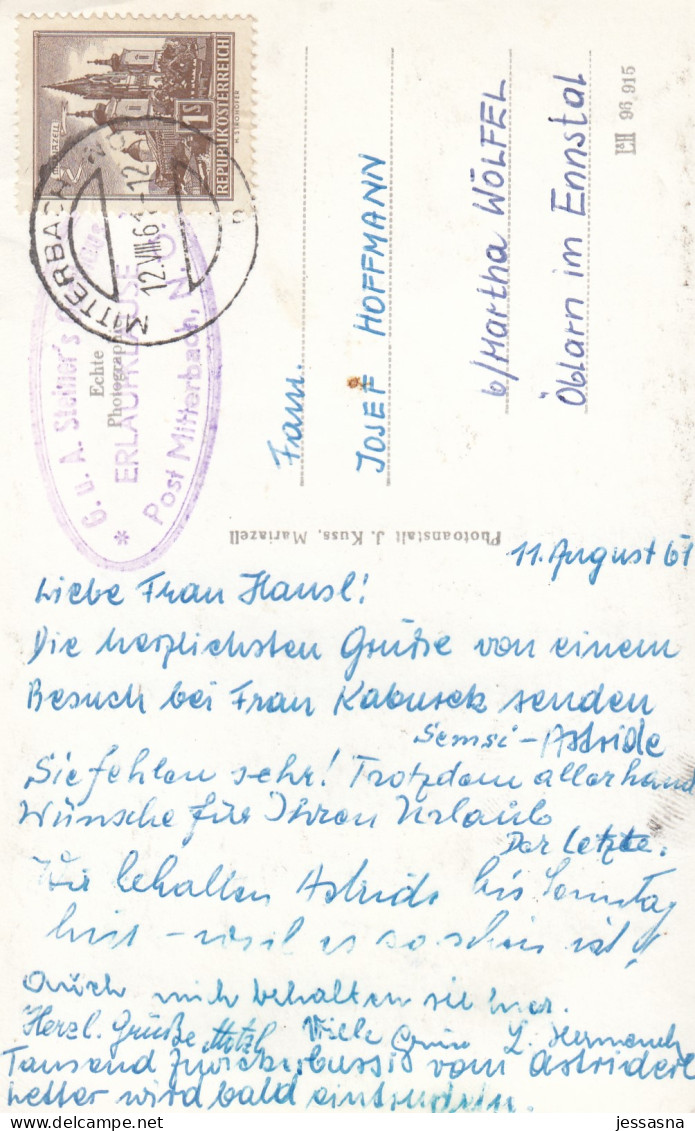 MARIAZELL
1S
REPUBLIK ÖSTERREICH
MITTERBACH N.Ö.
12.VIII.61-12
G. u. A. Steiner's
ERLAUFKLAUSE
Post Mitterbach, N. Ö.
Echte
Photographie
Fam.
JOSEF HOFFMANN
b/Martha WÖLFEL
Öblarn im Ennstal
L&II 96 915
Photoanstalt J. Kuss, Mariazell
11. August 61
Liebe Frau Hansl!
Die herzlichsten Grüße von einem
Besuch bei Frau Kabusek senden
Semsi - Astride
Sie fehlen sehr! Trotzdem allerhand
Wünsche für Ihren Urlaub
Der Letzte.
Wir behalten Astride bis Sonntag
hier - weil es so schön ist!
Auch mich behalten sie hier.
Herzl. Grüße Viele
Tausend vom Astriderl
wird bald
jessasna